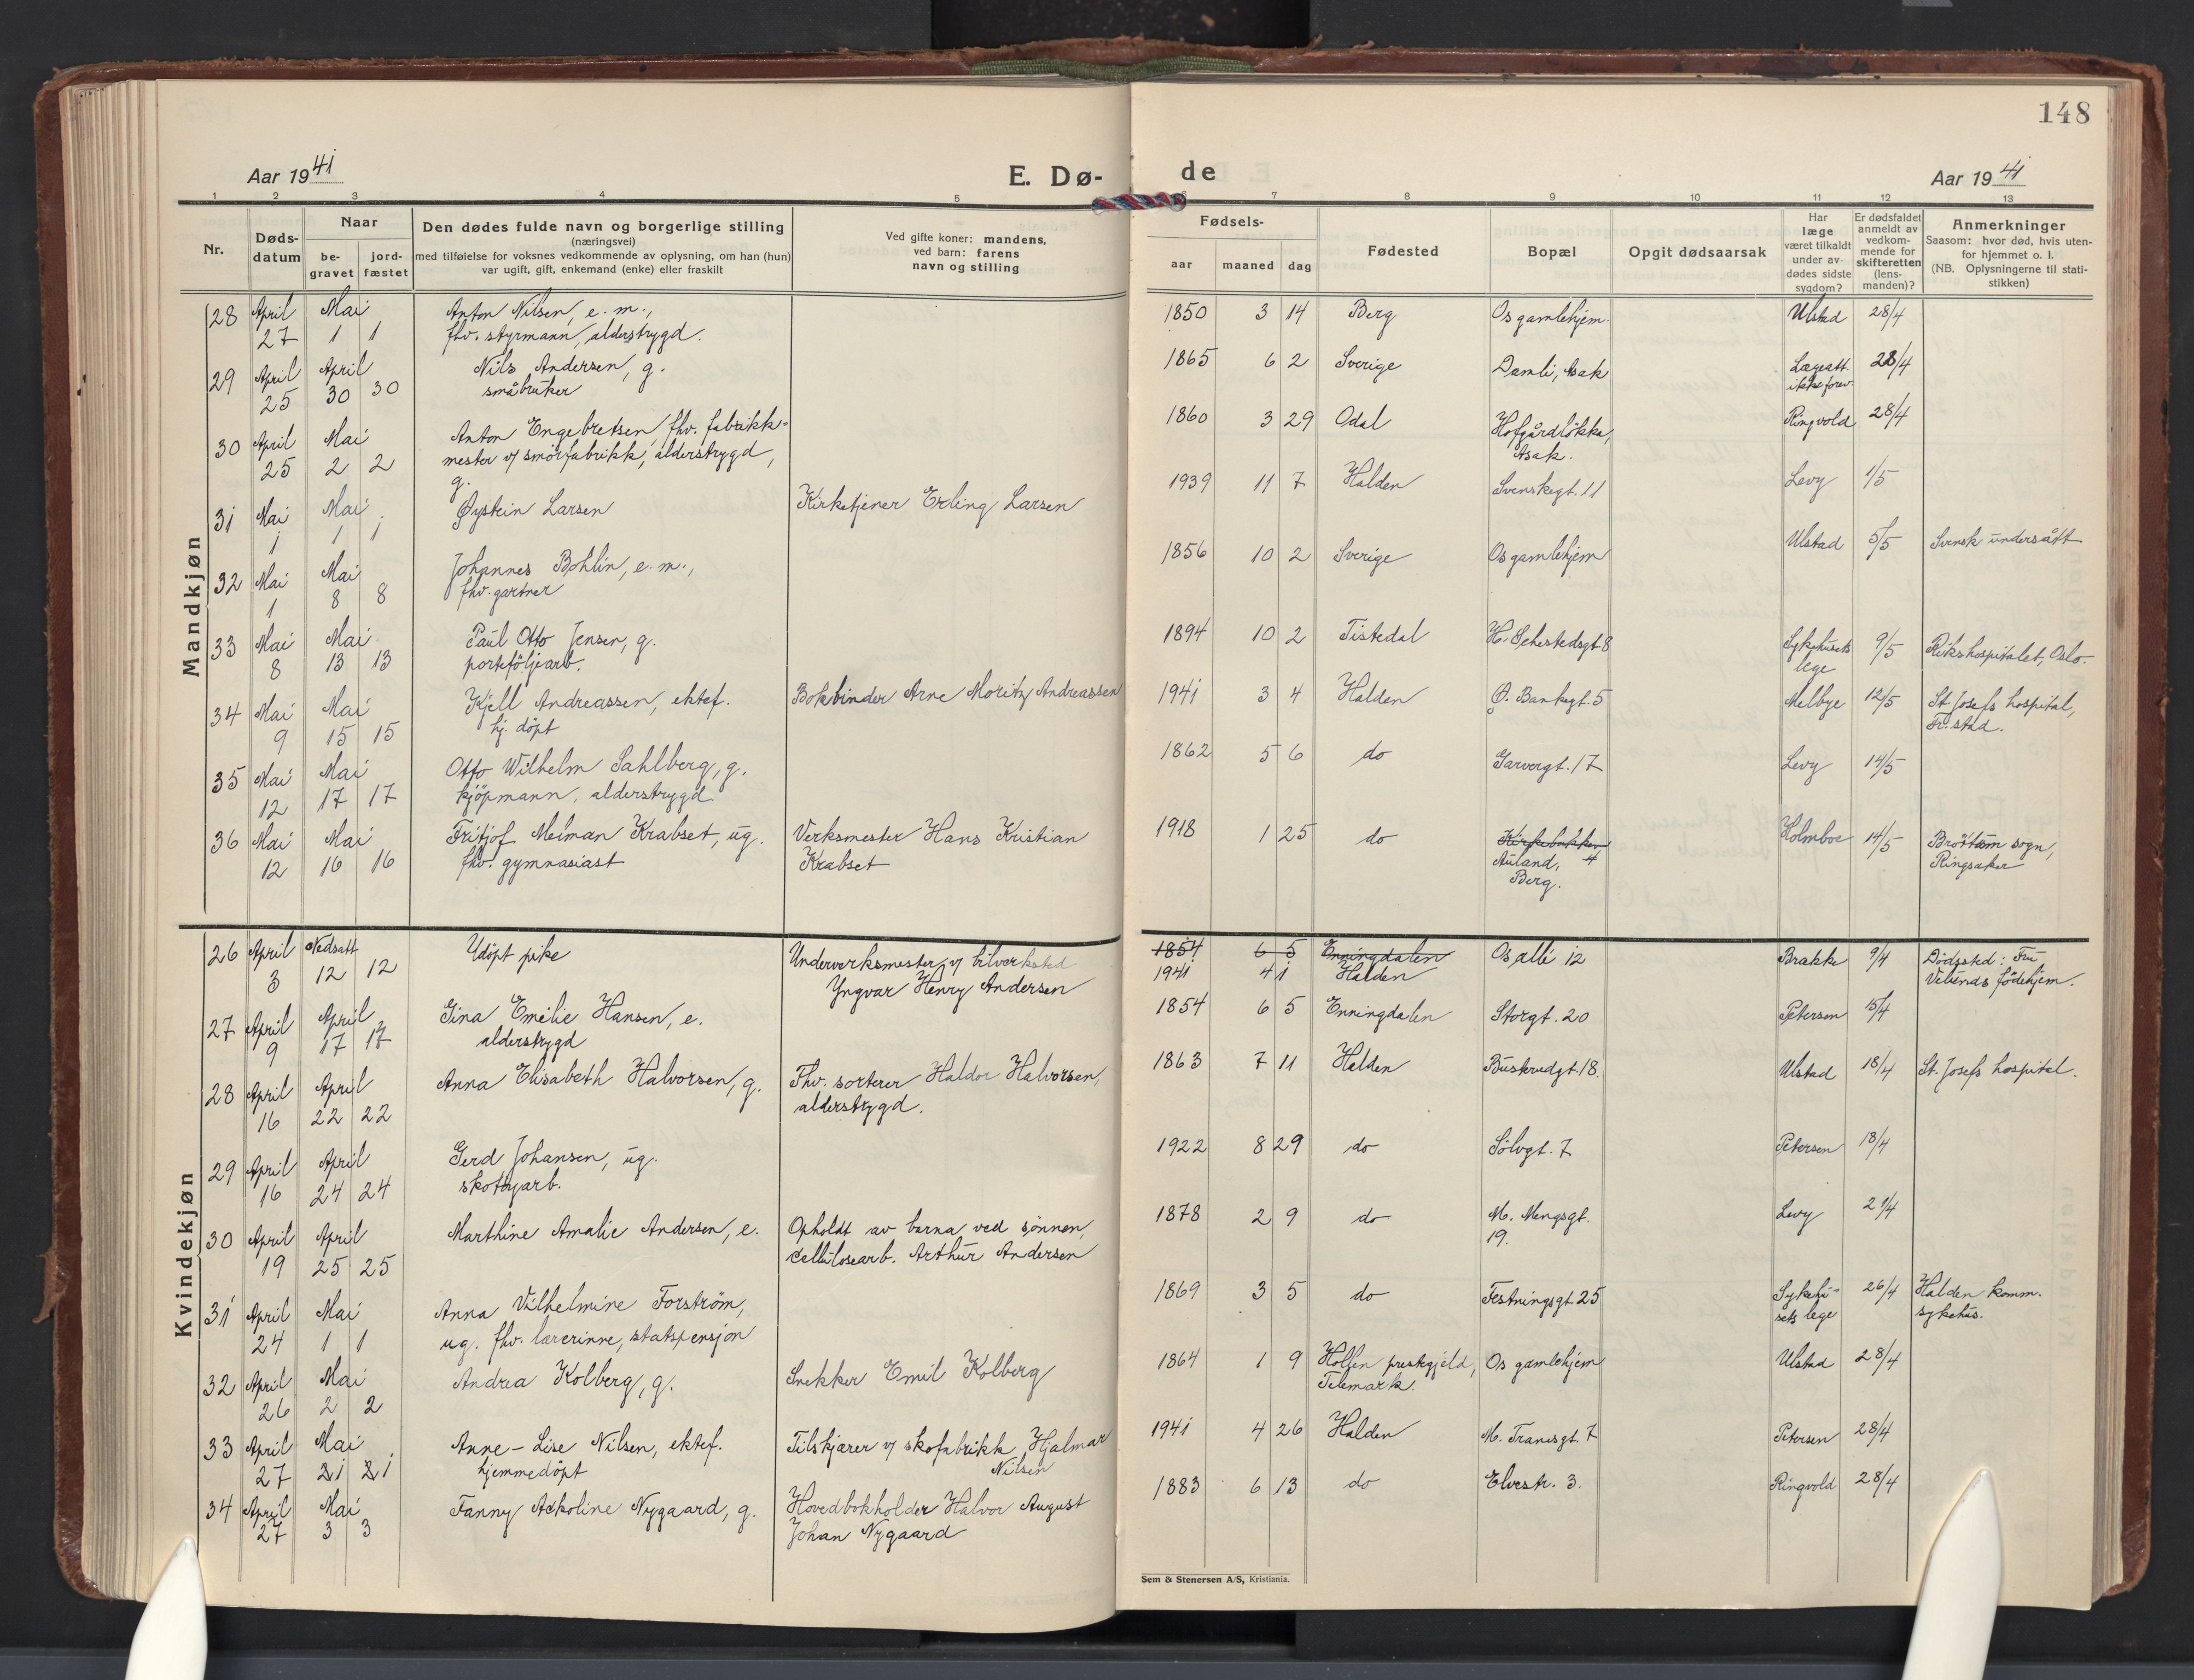 148
Aar 1941
E. Dø-
de
Aar 1941
1 2 3 4 5
6 7 8 9 10 11 12 13
Nr.
Døds-
datum
Naar
be-
gravet
jord-
fæstet
Den dødes fulde navn og borgerlige stilling
(næringsvei)
med tilføielse for voksnes vedkommende av oplysning, om han (hun)
var ugift, gift, enkemand (enke) eller fraskilt
Ved gifte koner: mandens,
ved barn: farens
navn og stilling
Fødsels-
aar
maaned
dag
Fødested
Bopæl
Opgit dødsaarsak
Har
læge
været tilkaldt
under av-
dødes sidste
sygdom?
Er dødsfaldet
anmeldt av
vedkom-
mende for
skifteretten
(lens-
manden)?
Anmerkninger
Saasom: hvor død, hvis uten-
for hjemmet o. l.
(NB. Oplysningerne til stati-
stikken)
Mandkjøn
28 April Mai Anton Nilsen, e.m., 1850 3 14 Berg Os gamlehjem. Ulstad 28/4
27 1 1 fhv. styrmann, alderstrygd.
29 April April Nils Andersen, g. 1865 6 2 Sverige Damli, Asak Lægeatt. 28/4
25 30 30 småbruker ikke forev.
30 April Mai Anton Engebretsen, fhv. fabrikk- 1860 3 29 Odal Hofgårdløkka, Ringvold 28/4
25 2 2 mester v/ smörfabrikk, alderstrygd, Asak.
g.
31 Mai Mai Øystein Larsen Kirketjener Erling Larsen 1939 11 7 Halden Svenskegt. 11 Levy 1/5
1 1 1
32 Mai Mai Johannes Bohlin, e.m., 1856 10 2 Sverige Os gamlehjem Ulstad 5/5 Svensk undersått
1 8 8 fhv. gartner
33 Mai Mai Paul Otto Jensen, g. 1894 10 2 Tistedal H. Sehestedsgt 8 Sykehusets 9/5 Rikshospitalet, Oslo.
8 13 13 porteföljearb. lege
34 Mai Mai Kjell Andreassen, ektef. Bokbinder Arne Moritz Andreassen 1941 3 4 Halden Ø. Bankegt. 5 Melbye 12/5 St. Josefs hospital,
9 15 15 hj. döpt Fr.stad.
35 Mai Mai Otto Wilhelm Sahlberg, g. 1862 5 6 do Garvergt. 17 Levy 14/5
12 17 17 kjöpmann, alderstrygd
36 Mai Mai Fritjof Melman Krabset, ug. Verksmester Hans Kristian 1918 1 25 do Kirkebakken Holmboe 14/5 Bröttum sogn,
12 16 16 fhv. gymnasiast Krabset Auland, 4 Ringsaker
Berg.
Kvindekjøn
26 April Nedsatt Udöpt pike Underverksmester v/ bilverksted 1854 6 5 Enningdalen Os allé 12 Brakke 9/4 Dödssted: Fru
3 12 12 Yngvar Henry Andersen 1941 4 1 Halden födehjem.
27 April April Gina Emilie Hansen, e. 1854 6 5 Enningdalen Storgt. 20 Petersen 15/4
9 17 17 alderstrygd
28 April April Anna Elisabeth Halvorsen, g. Fhv. sorterer Haldor Halvorsen, 1863 7 11 Halden Buskrudgt 18. Ulstad 18/4 St. Josefs hospital.
16 22 22 alderstrygd.
29 April April Gerd Johansen, ug. 1922 8 29 do Sölvgt. 7 Petersen 18/4
16 24 24 skotöyarb.
30 April April Marthine Amalie Andersen, e. Opholdt av barna, ved sønnen, 1878 2 9 do M. Mengsgt. Levy 21/4
19 25 25 cellulosearb. Arthur Andersen 19.
31 April Mai Anna Vilhelmine Forström, 1869 3 5 do Festningsgt 25 Sykehu- 26/4 Halden komm.
24 1 1 ug. fhv. lærerinne, statspensjon sets lege sykehus.
32 April Mai Andrea Kolberg, g. Snekker Emil Kolberg 1864 1 9 prestegjeld, Os gamlehjem Ulstad 28/4
26 2 2 Telemark.
33 April Mai Anne-Lise Nilsen, ektef. Tilskjærer v/ skofabrikk Hjalmar 1941 4 26 Halden M. Tranesgt. 7 Petersen 28/4
27 21 21 hjemmedöpt Nilsen
34 April Mai Fanny Nygaard, g. Hovedbokholder Halvor August 1883 6 13 do Elvestr. 3. Ringvold 28/4
27 3 3 Johan Nygaard
Sem & Stenersen A/S, Kristiania.